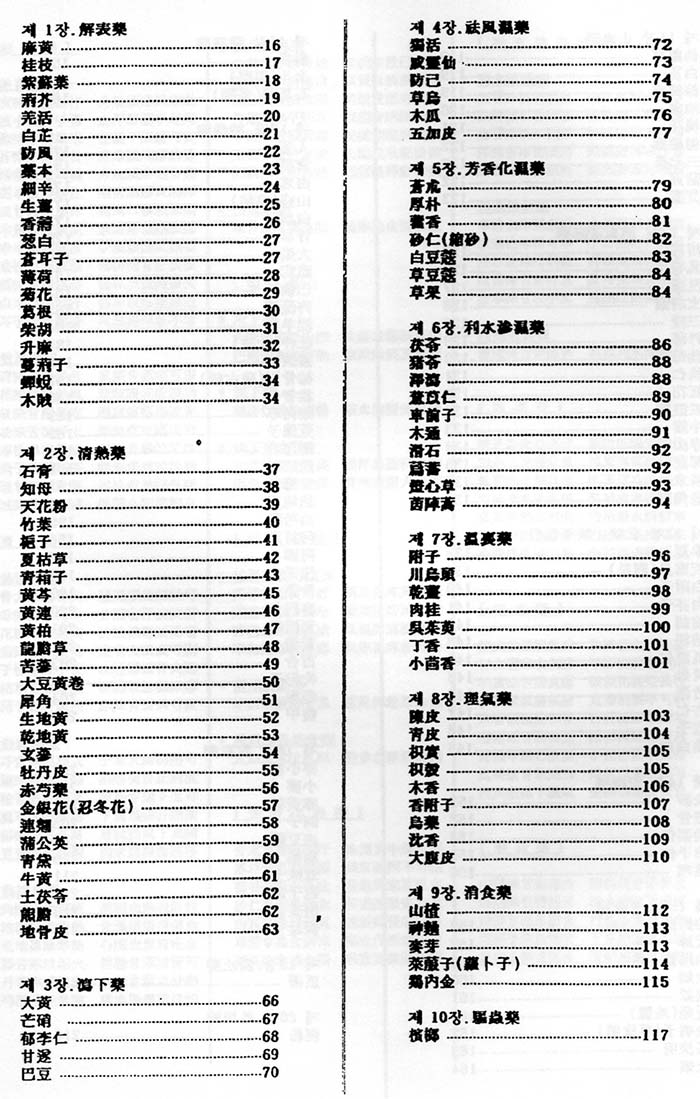 제 1장.解表藥
麻黃 16
桂枝 17
紫蘇葉 18
荊芥 19
羌活 20
白芷 21
防風 22
藁本 23
細辛 24
生薑 25
香薷 26
葱白 27
蒼耳子 27
薄荷 28
菊花 29
葛根 30
柴胡 31
升麻 32
蔓荊子 33
蟬蛻 34
木賊 34
제 2장.清熱藥
石膏 37
知母 38
天花粉 39
竹葉 40
梔子 41
夏枯草 42
青箱子 43
黃芩 45
黃連 46
黃柏 47
龍膽草 48
苦蔘 49
大豆黃卷 50
犀角 51
生地黃 52
乾地黃 53
玄蔘 54
牡丹皮 55
赤芍藥 56
金銀花(忍冬花) 57
連翹 58
蒲公英 59
青黛 60
牛黃 61
土茯苓 62
熊膽 62
地骨皮 63
제 3장.瀉下藥
大黃 66
芒硝 67
郁李仁 68
甘遂 69
巴豆 70
제 4장.祛風濕藥
獨活 72
威靈仙 73
防己 74
草烏 75
木瓜 76
五加皮 77
제 5장.芳香化濕藥
蒼朮 79
厚朴 80
藿香 81
砂仁(縮砂) 82
白豆蔻 83
草豆蔻 84
草果 84
제 6장.利水滲濕藥
茯苓 86
猪苓 88
澤瀉 88
薏苡仁 89
車前子 90
木通 91
滑石 92
萹蓄 92
燈心草 93
茵陣蒿 94
제 7장.溫裏藥
附子 96
川烏頭 97
乾薑 98
肉桂 99
吳茱萸 100
丁香 101
小茴香 101
제 8장.理氣藥
陳皮 103
靑皮 104
枳實 105
枳殼 105
木香 106
香附子 107
烏藥 108
沈香 109
大腹皮 110
제 9장.消食藥
山楂 112
神麯 113
麥芽 113
萊菔子(蘿卜子) 114
鷄內金 115
제 10장.驅蟲藥
檳榔 117